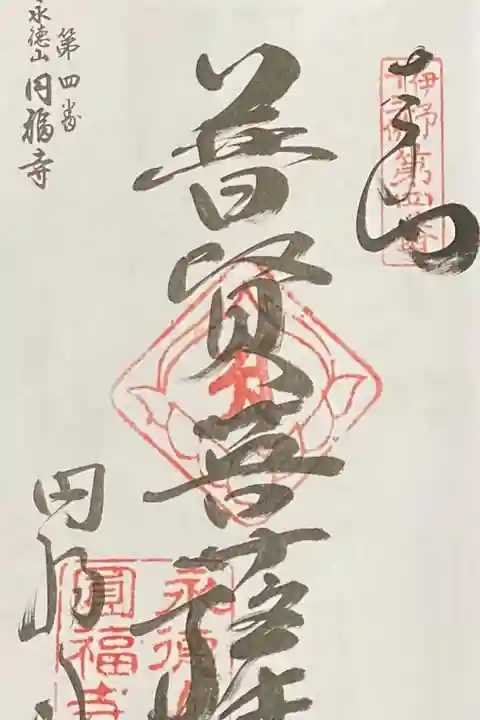 奉拝
伊予
十三佛
第四番
普賢菩薩
円福
永徳
圓福寺
第四番
永徳山 円福寺